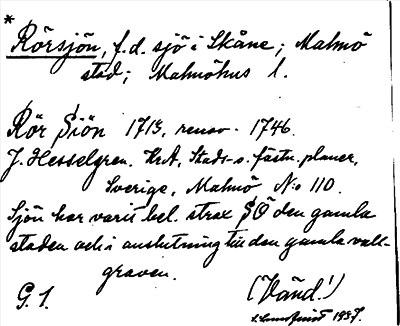 *
Rörsjön, f.d. sjö i Skåne; Malmö
stad; Malmöhus l.
Rör Siön 1713, renov. 1746.
J. Hesselgren. KrA, Stads- o. fästn. planer,
Sverige, Malmö N:o 110.
Sjön har varit bel. strax SÖ den gamla
staden och i anslutning till den gamla vall-
graven.
G. 1. (Vänd!)
1937.